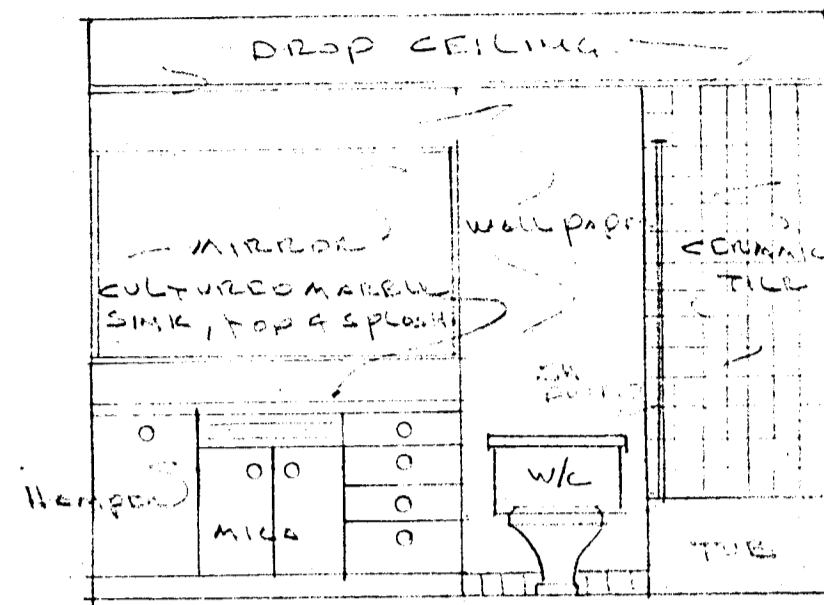 DROP CEILING
MIRROR
CULTURED MARBLE
SINK, TOP & SPLASH
Wallpaper
CERAMIC
TILE
Hamper
MICA
W/C
TUB